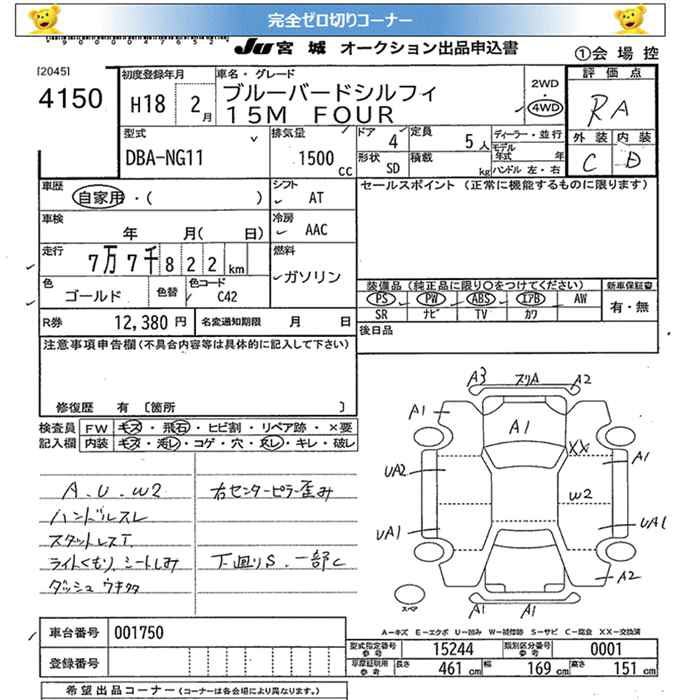 完全ゼロ切りコーナー
JU 宮城 オークション出品申込書
①会場控
[2045]
4150
初度登録年月
H18 2月
車名・グレード
ブルーバードシルフィ
15M FOUR
2WD
・
4WD
評価点
RA
外装 内装
C D
型式
DBA-NG11
排気量
1500 cc
ドア
4
定員
5人
形状
SD
積載
kg
ディーラー・並行
モデル年式 年
ハンドル 左・右
車歴
自家用・( )
シフト
AT
セールスポイント (正常に機能するものに限ります)
車検
年 月( 日)
冷房
AAC
走行
7万7千822km
燃料
ガソリン
色
ゴールド
色替
色コード
C42
装備品 (純正品に限り○をつけてください)
新車保証書
PS PW ABS エアB AW
SR ナビ TV カワ
有・無
R券 12,380円
名変通知期限 月 日
後日品
注意事項申告欄 (不具合内容等は具体的に記入して下さい)
修復歴 有 〔箇所 〕
検査員記入欄
FW キズ・飛石・ヒビ割・リペア跡・×要
内装 キズ・汚レ・コゲ・穴・スレ・キレ・破レ
A.U.W2
ハンドルスレ
スタットレスT.
ライトくもり.シートしみ
ダッシュウキクタ
右センターピラー歪み
下廻りS.一部C
A3 スリA A2
A1 A1
XX A1
UA2 W2
UA1 UA1
A2
スペア
A1 A1
A―キズ E―エクボ U―凹み W―補修跡 S―サビ C―腐食 XX―交換済
車台番号 001750
登録番号
型式指定番号 参考 15244
類別区分番号 参考 0001
車庫証明用 参考 長さ 461 cm 幅 169 cm 高さ 151 cm
希望出品コーナー (コーナーは各会場により異なります。)